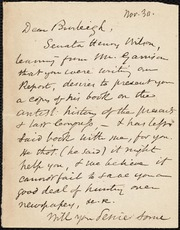 Nov. 30.
Dear Burleigh,
Senator Henry Wilson,
learning from Mr. Garrison
that you were writing our
Report, desires to present you
a copy of his book on the
antisl. history of the
last Congress, & has left
said book with me, for you
so that (he said) it might
help you, & we believe it
cannot fail to save you a
good deal of hunting over
newspapers, &c &c.
Will you devise some